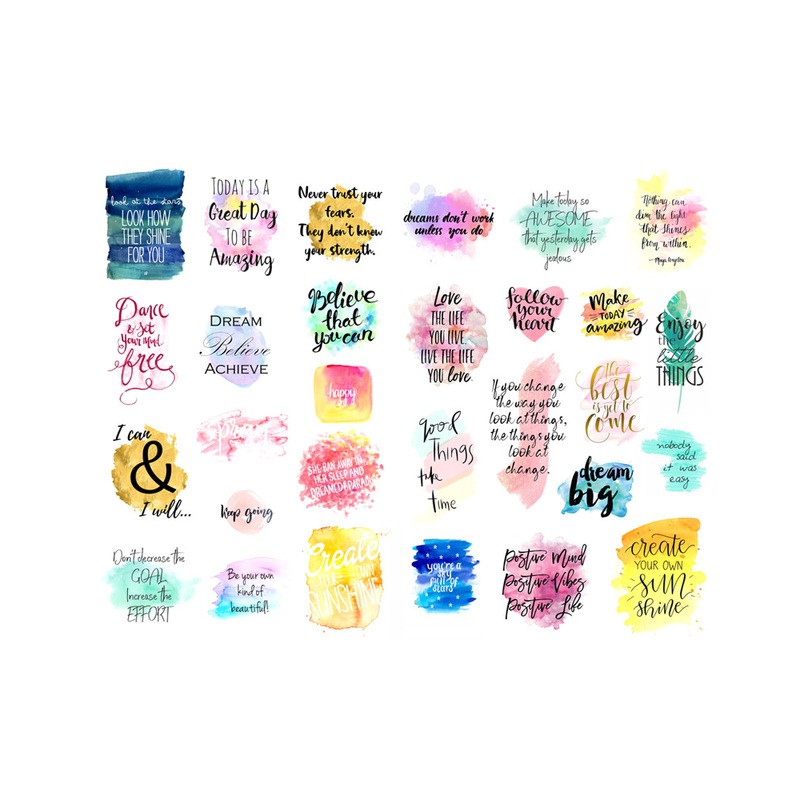 look at the stars
LOOK HOW
THEY SHINE
FOR YOU
TODAY IS A
Great Day
TO BE
Amazing
Never trust your
fears.
They don't know
your strength.
dreams don't work
unless you do
Make today so
AWESOME
that yesterday gets
jealous
Nothing can
dim the light
that shines
from within.
- Maya Angelou
Dance
& set
your mind
free
DREAM
Believe
ACHIEVE
Believe
that
you can
happy
Love
THE LIFE
YOU LIVE
LIVE THE LIFE
YOU love.
follow
your
heart
Make
TODAY
amazing
Enjoy
the
little
THINGS
I can
&
I will...
keep going
SHE RAN AWAY IN
HER SLEEP AND
DREAMED OF PARADISE
good
Things
take
time
If you change
the way you
look at things,
the things you
look at
change.
the
best
is yet to
come
dream
big
nobody
said
it was
easy
Don't decrease the
GOAL
Increase the
EFFORT
Be your own
kind of
beautiful!
Create
YOUR OWN
SUNSHINE
you're a
sky
full of
stars
Positive Mind
Positive Vibes
Positive Life
create
YOUR OWN
SUN
shine